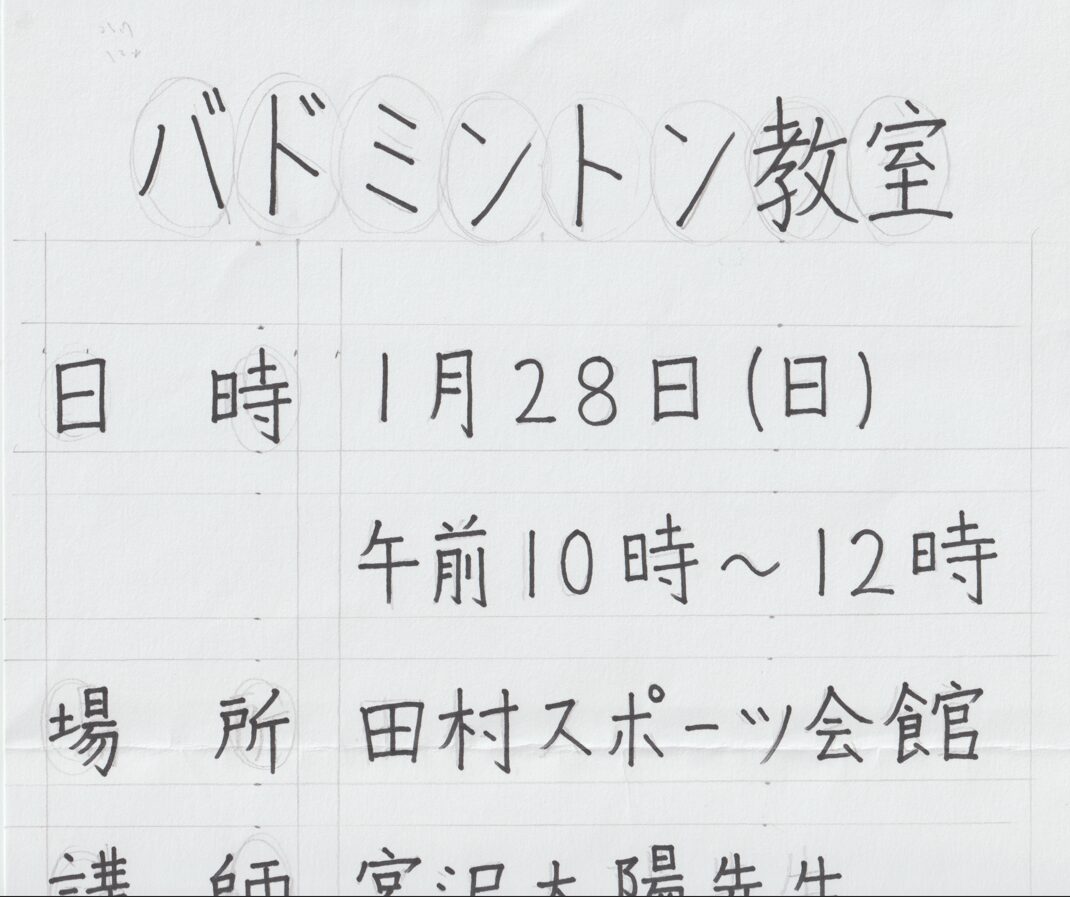 バドミントン教室
日時 1月28日(日)
午前10時~12時
場所 田村スポーツ会館
講師 宮沢太陽先生